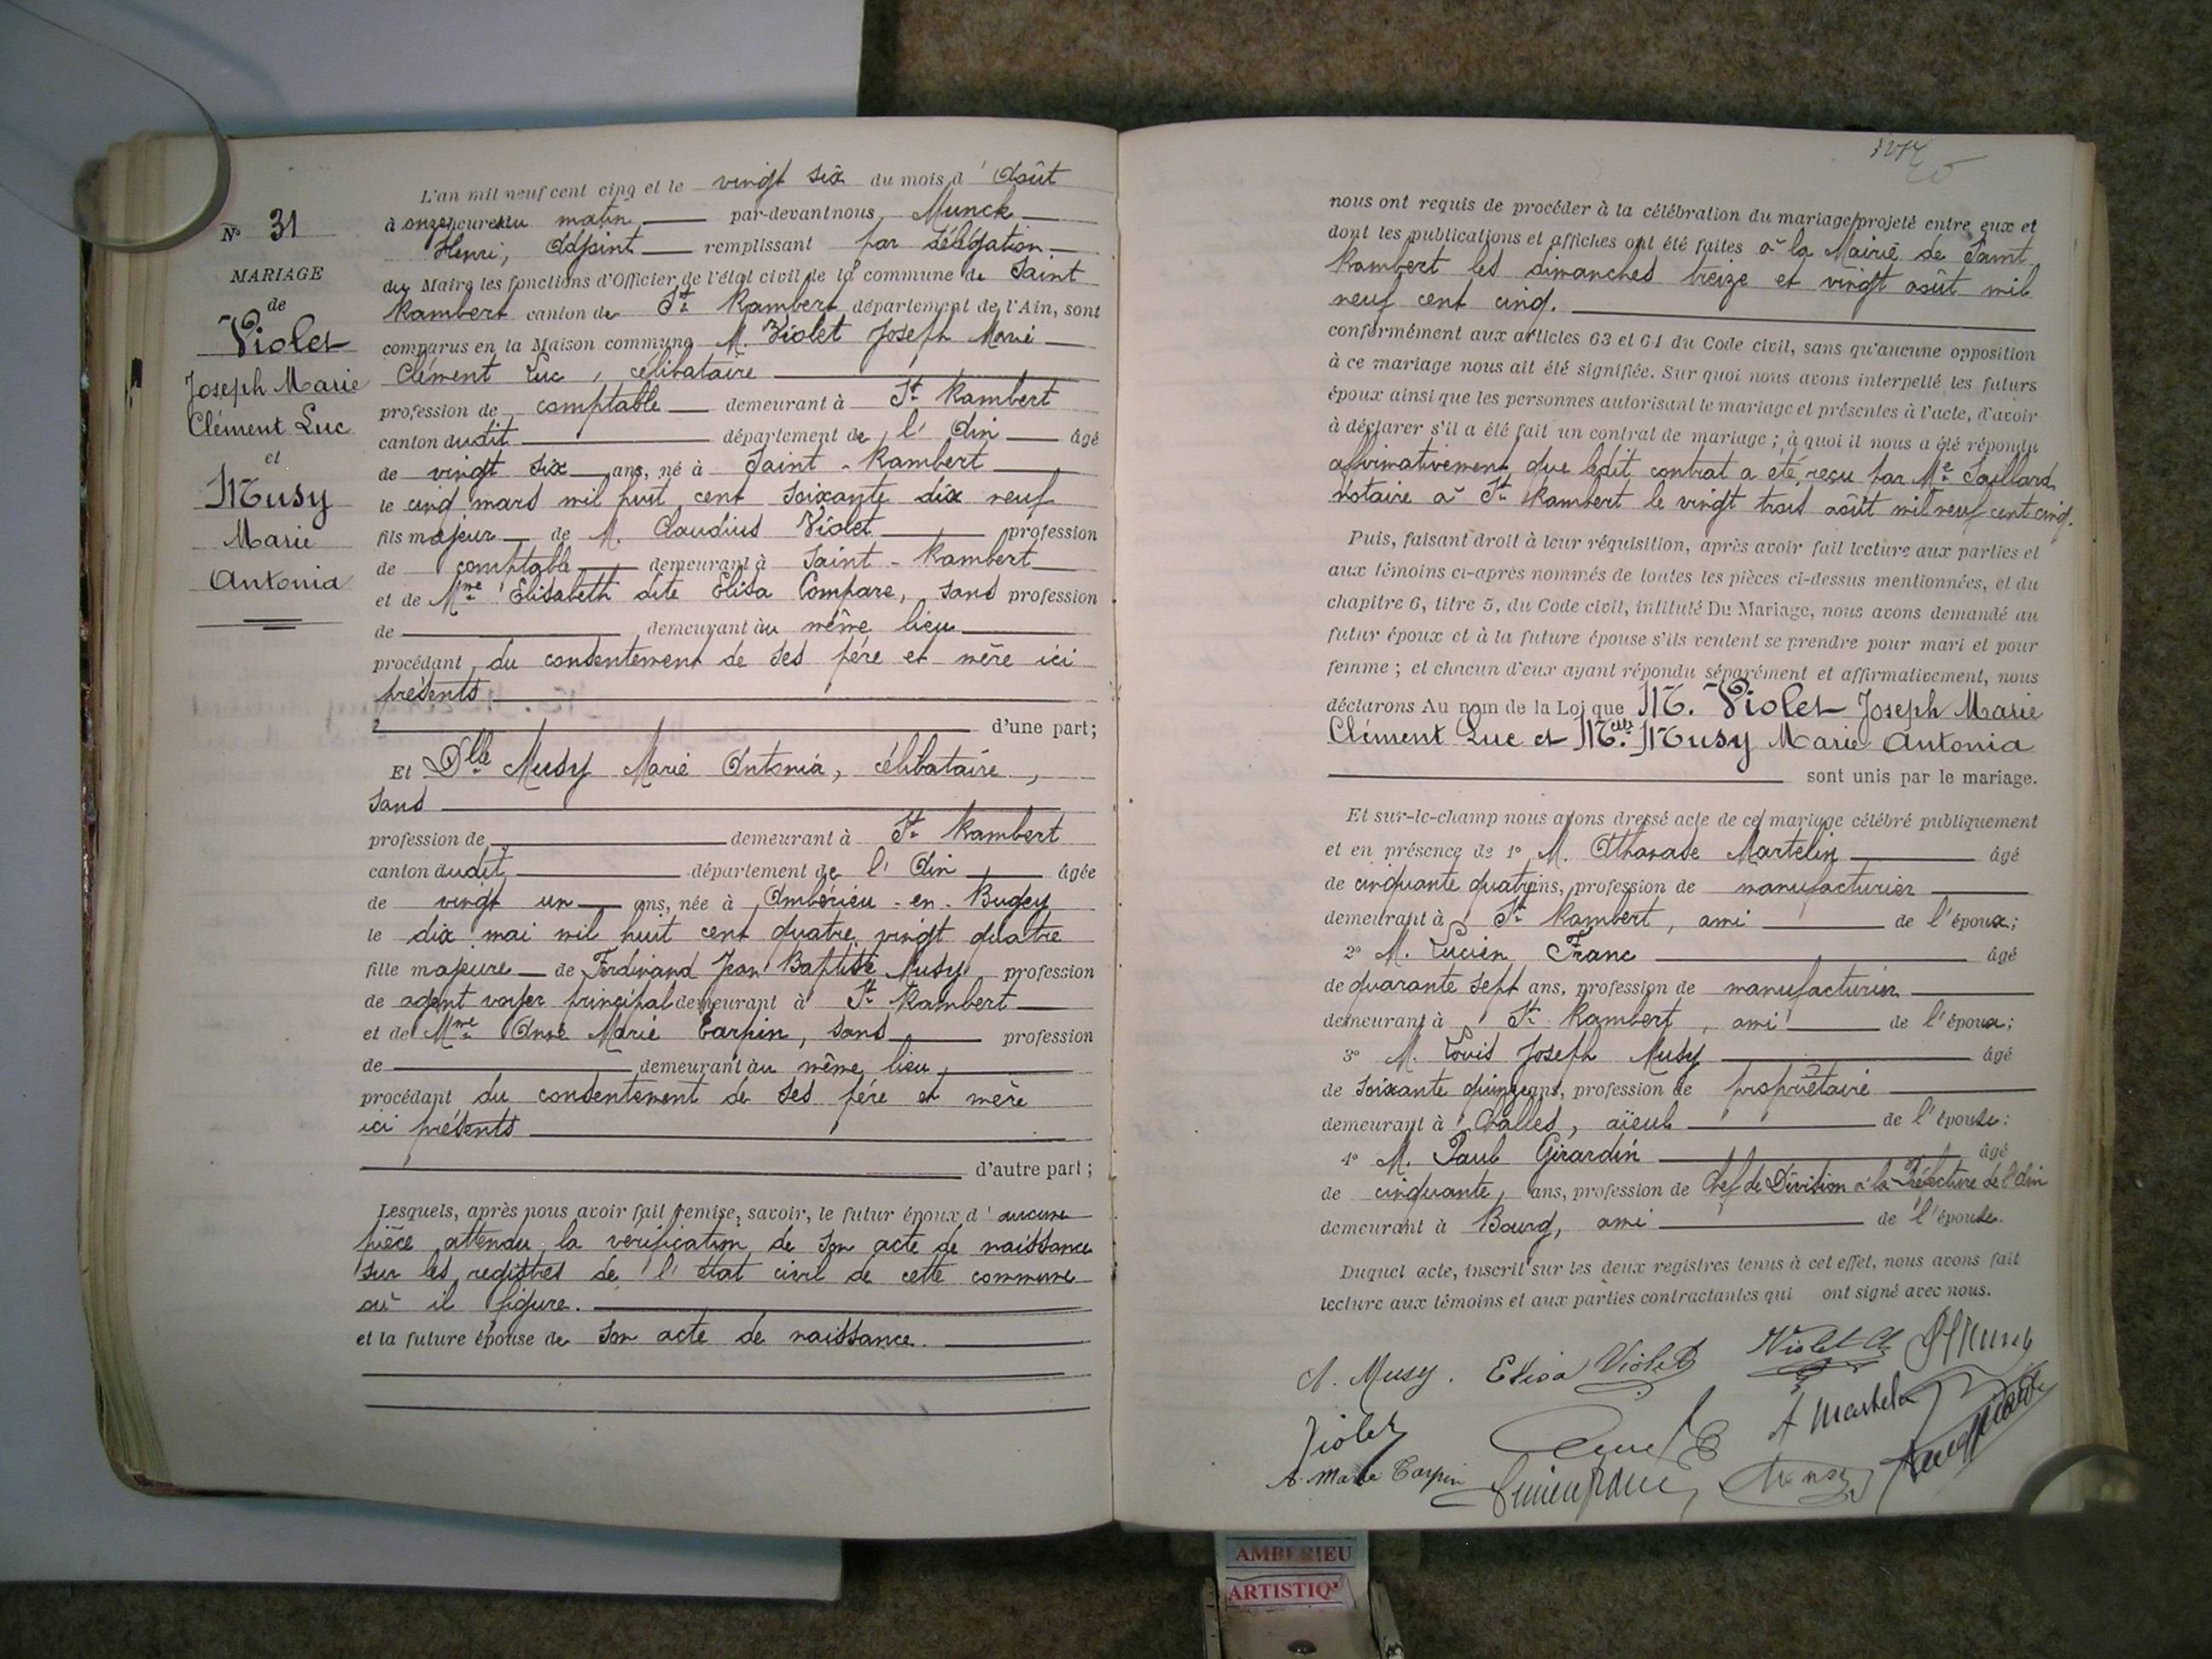 N° 31
MARIAGE
de
Violet
Joseph Marie
Clément Luc
et
Musy
Marie
Antonia
L'an mil neuf cent cinq et le vingt six du mois d'Août
à onze heures du matin par-devant nous, Munck
Henri, Adjoint remplissant par délégation
du Maire les fonctions d'Officier de l'état civil de la commune de Saint
Rambert canton de St Rambert département de l'Ain, sont
comparus en la Maison commune M. Violet Joseph Marie
Clément Luc, célibataire
profession de comptable demeurant à St Rambert
canton dudit département de l'Ain âgé
de vingt six ans, né à Saint-Rambert
le cinq mars mil huit cent soixante dix neuf
fils majeur de M. Claudius Violet profession
de comptable demeurant à Saint-Rambert
et de Mme Elisabeth dite Elisa Compare, sans profession
de demeurant au même lieu
procédant du consentement de ses père et mère ici
présents
d'une part;
Et Dlle Musy Marie Antonia, célibataire,
sans
profession de demeurant à St Rambert
canton dudit département de l'Ain âgée
de vingt un ans, née à Ambérieu-en-Bugey
le dix mai mil huit cent quatre vingt quatre
fille majeure de Ferdinand Jean Baptiste Musy profession
de agent voyer principal demeurant à St Rambert
et de Mme Anne Marie Carpin, sans profession
de demeurant au même lieu
procédant du consentement de ses père et mère
ici présents
d'autre part;
Lesquels, après nous avoir fait remise, savoir, le futur époux d'aucune
pièce attendu la vérification de son acte de naissance
sur les registres de l'état civil de cette commune
où il figure.
et la future épouse de son acte de naissance.
nous ont requis de procéder à la célébration du mariage projeté entre eux et
dont les publications et affiches ont été faites à la Mairie de Saint
Rambert les dimanches treize et vingt août mil
neuf cent cinq.
conformément aux articles 63 et 64 du Code civil, sans qu'aucune opposition
à ce mariage nous ait été signifiée. Sur quoi nous avons interpellé les futurs
époux ainsi que les personnes autorisant le mariage et présentes à l'acte, d'avoir
à déclarer s'il a été fait un contrat de mariage; à quoi il nous a été répondu
affirmativement que ledit contrat a été reçu par Me Saillard
Notaire à St Rambert le vingt trois août mil neuf cent cinq.
Puis, faisant droit à leur réquisition, après avoir fait lecture aux parties et
aux témoins ci-après nommés de toutes les pièces ci-dessus mentionnées, et du
chapitre 6, titre 5, du Code civil, intitulé Du Mariage, nous avons demandé au
futur époux et à la future épouse s'ils veulent se prendre pour mari et pour
femme; et chacun d'eux ayant répondu séparément et affirmativement, nous
déclarons Au nom de la Loi que M. Violet Joseph Marie
Clément Luc et Melle Musy Marie Antonia
sont unis par le mariage.
Et sur-le-champ nous avons dressé acte de ce mariage célébré publiquement
et en présence de 1° M. Athanase Martelin âgé
de cinquante quatre ans, profession de manufacturier
demeurant à St Rambert, ami de l'époux;
2° M. Lucien Franc âgé
de quarante sept ans, profession de manufacturier
demeurant à St Rambert, ami de l'époux;
3° M. Louis Joseph Musy âgé
de soixante quinze ans, profession de propriétaire
demeurant à Challes, aïeul de l'épouse;
4° M. Paul Girardin âgé
de cinquante ans, profession de Chef de Division à la Préfecture de l'Ain
demeurant à Bourg, ami de l'épouse.
Duquel acte, inscrit sur les deux registres tenus à cet effet, nous avons fait
lecture aux témoins et aux parties contractantes qui ont signé avec nous.
A. Musy. Elisa Violet Violet Cl
Violet A Martelin
A. Marie Carpin Lucien Franc Musy
AMBERIEU
ARTISTIQ'